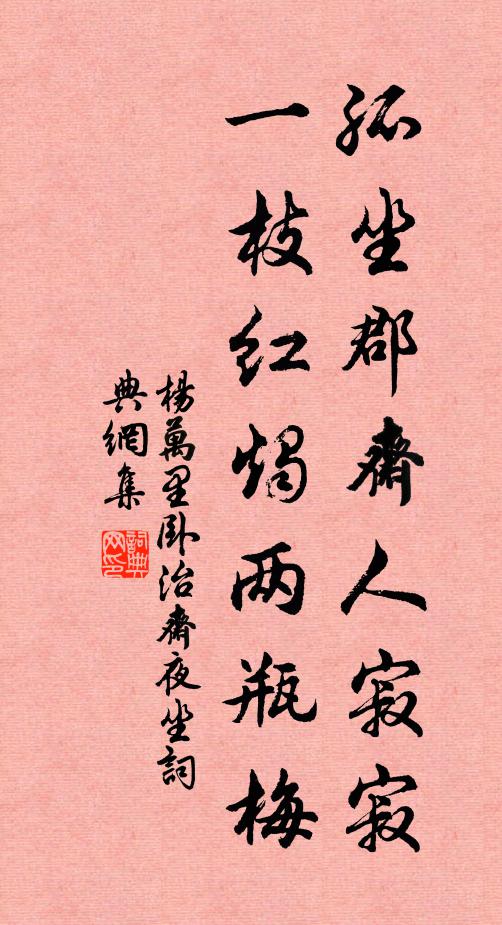 孤坐郡齋人寂寂
一枝紅燭两瓶梅
楊萬里卧治齋夜坐詞
典網集
詞典
网印